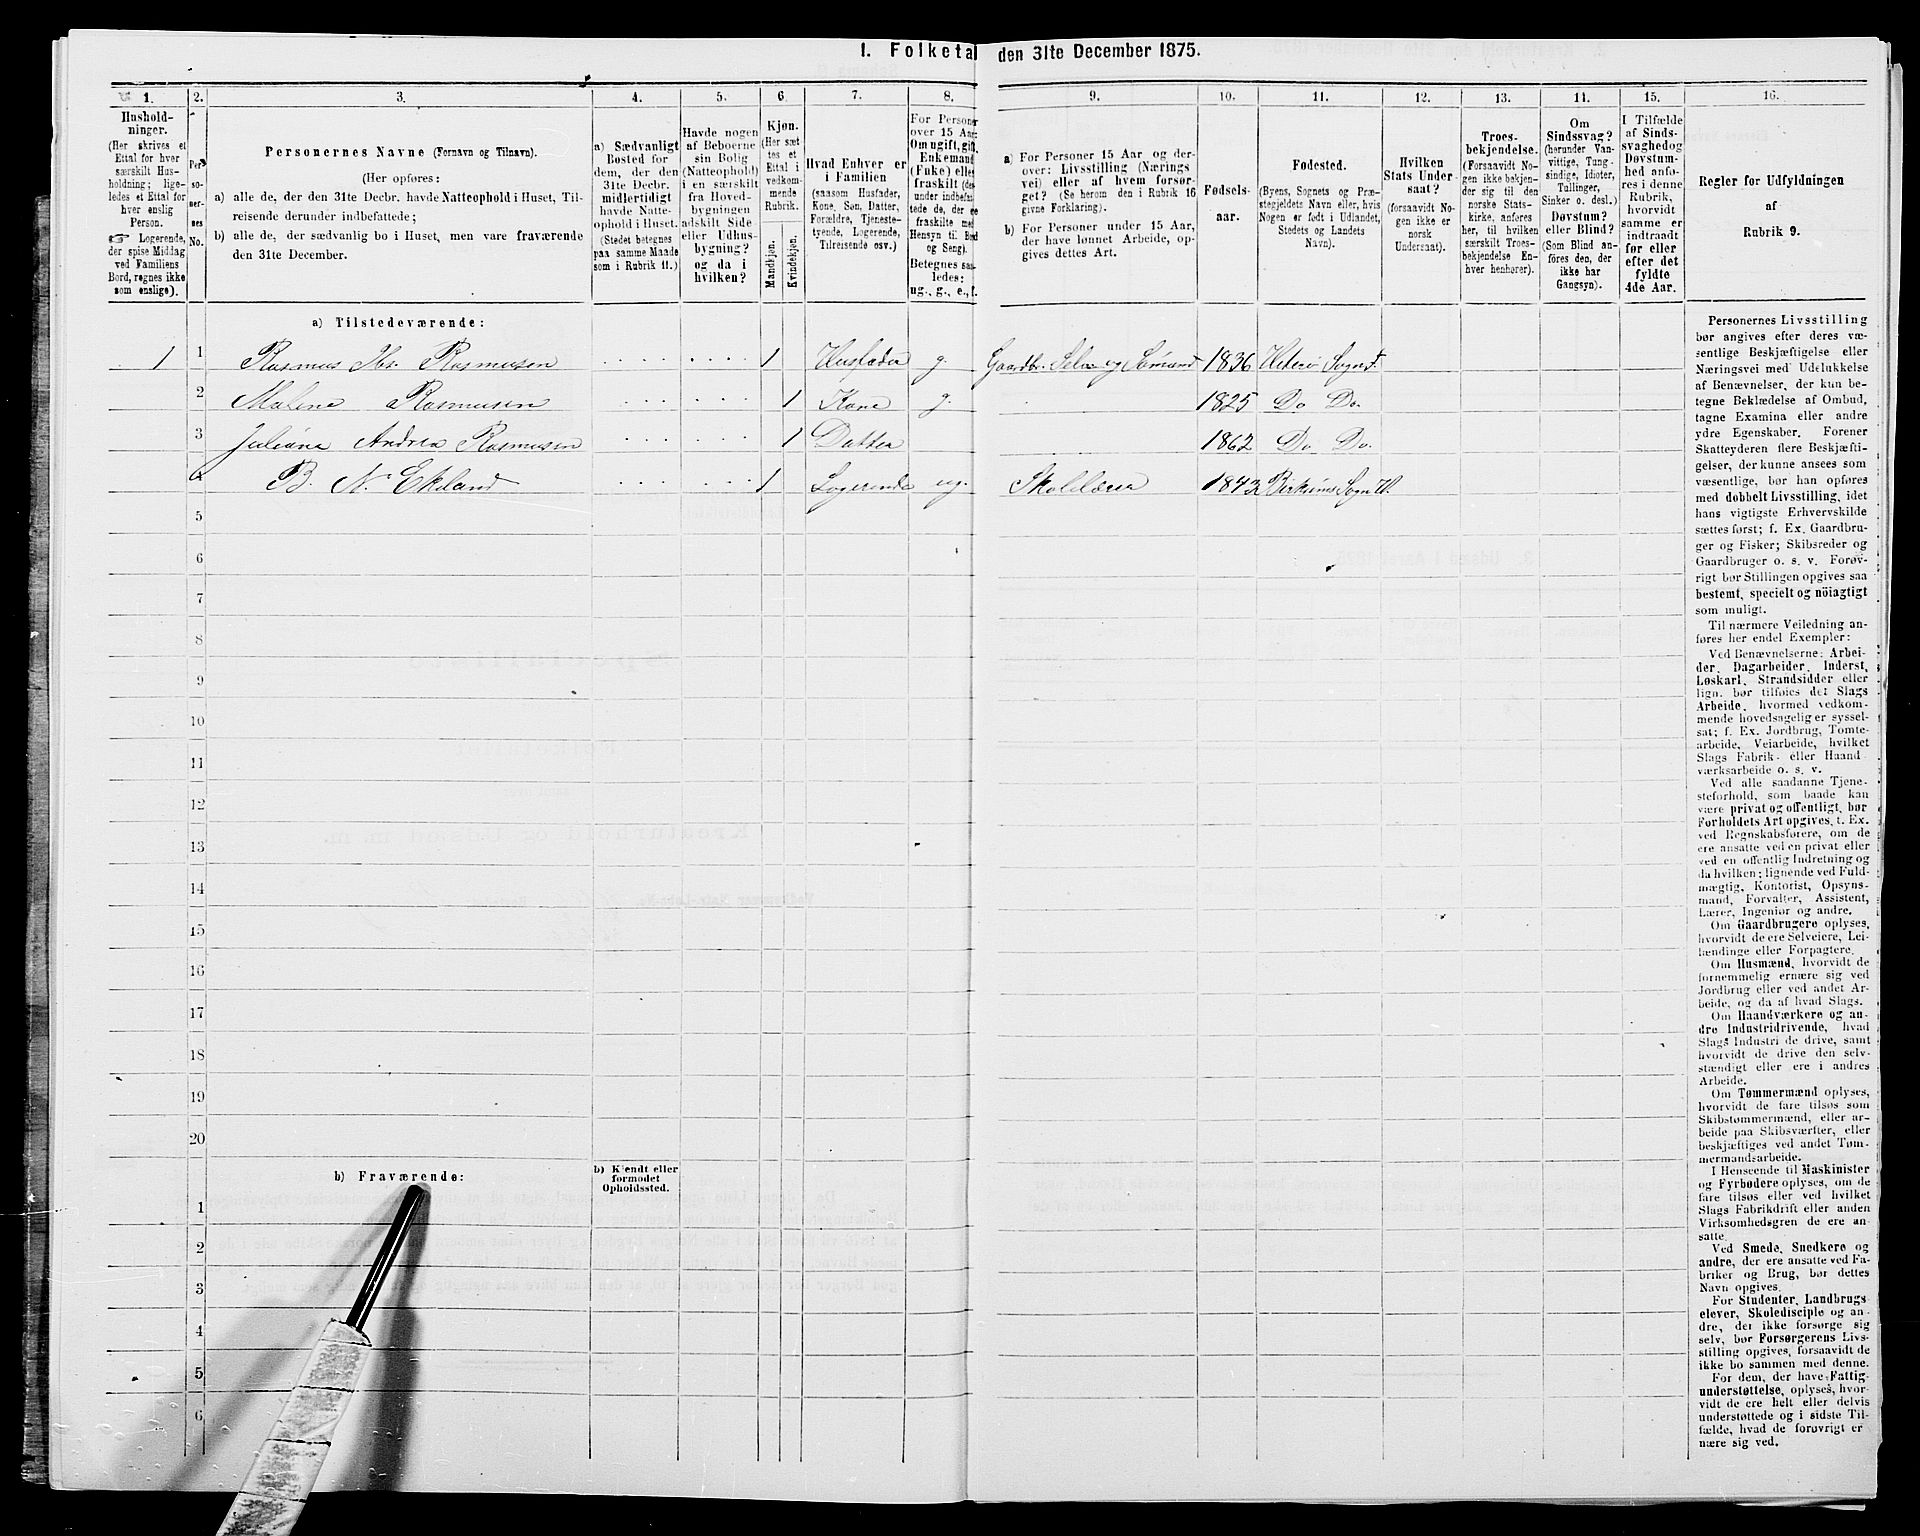 1. Folketal den 31te December 1875.
1. 2. 3. 4. 5. 6. 7. 8. 9. 10. 11. 12. 13. 14. 15. 16.
Hushold-
ninger.
(Her skrives et
Ettal for hver
særskilt Hus-
holdning; lige-
ledes et Ettal for
hver enslig
Person.
☞ Logerende,
der spise Middag
ved Familiens
Bord, regnes ikke
som enslige).
Per-
so-
ner-
nes
No.
Personernes Navne (Fornavn og Tilnavn).
(Her opføres:
a) alle de, der den 31te Decbr. havde Natteophold i Huset, Til-
reisende derunder indbefattede;
b) alle de, der sædvanlig bo i Huset, men vare fraværende
den 31te December.
a) Sædvanligt
Bosted for
dem, der den
31te Decbr.
midlertidigt
havde Natte-
ophold i Huset.
(Stedet betegnes
paa samme Maade
som i Rubrik 11.)
Havde nogen
af Beboerne
sin Bolig
(Natteophold)
i en særskilt
fra Hoved-
bygningen
adskilt Side
eller Udhus-
bygning?
og da i
hvilken?
Kjøn.
(Her sæt-
tes et
Ettal i
vedkom-
mende
Rubrik.
Mandkjøn.
Kvindekjøn.
Hvad Enhver er
i Familien
(saasom Husfader,
Kone, Søn, Datter,
Forældre, Tjeneste-
tyende, Logerende,
Tilreisende osv.)
For Personer
over 15 Aar:
Om ugift, gift,
Enkemand
(Enke) eller
fraskilt (der-
under indbefat-
tede de, der ere
fraskilte med
Hensyn til Bord
og Seng).
Betegnes saa-
ledes:
ug., g., e., f.
a) For Personer 15 Aar og der-
over: Livsstilling (Nærings-
vei) eller af hvem forsør-
get? (Se herom den i Rubrik 16
givne Forklaring).
b) For Personer under 15 Aar,
der have lønnet Arbeide, op-
gives dettes Art.
Fødsels-
aar.
Fødested.
(Byens, Sognets og Præ-
stegjeldets Navn eller, hvis
Nogen er født i Udlandet,
Stedets og Landets
Navn).
Hvilken
Stats Under-
saat?
(forsaavidt No-
gen ikke er
norsk
Undersaat).
Troes-
bekjendelse.
(Forsaavidt No-
gen ikke bekjen-
der sig til den
norske Stats-
kirke, anføres
her, til hvilken
særskilt Troes-
bekjendelse En-
hver henhører).
Om
Sindssvag?
(herunder Van-
vittige, Tung-
sindige, Idioter,
Tullinger,
Sinker o. desl.)
Døvstum?
eller Blind?
(Som Blind an-
føres den, der
ikke har
Gangsyn).
I Tilfælde
af Sinds-
svaghed og
Døvstum-
hed anfø-
res i denne
Rubrik,
hvorvidt
samme er
indtraadt
før eller
efter det
fyldte
4de Aar.
Regler for Udfyldningen
af
Rubrik 9.
a) Tilstedeværende:
1 1 Rasmus Rasmusen 1 Husfader g. Gaardbr. Selv. og Sømand 1836 Hiterø Sogn
2 Malene Rasmusen 1 Kone g. 1825 Do Do.
3 Juliana Andrea Rasmusen 1 Datter 1862 Do Do.
4 B. N. Ekeland 1 Logerende ug. Skolelærer
5
6
7
8
9
10
11
12
13
14
15
16
17
18
19
20
b) Fraværende:
b) Kjendt eller
formodet
Opholdssted.
1
2
3
4
5
6
Personernes Livsstilling
bør angives efter deres væ-
sentlige Beskjæftigelse eller
Næringsvei med Udelukkelse
af Benævnelser, der kun be-
tegne Beklædelse af Ombud,
tagne Examina eller andre
ydre Egenskaber. Forener
Skatteyderen flere Beskjæfti-
gelser, der kunne ansees som
væsentlige, bør han opføres
med dobbelt Livsstilling, idet
hans vigtigste Erhvervskilde
sættes først; f. Ex. Gaardbru-
ger og Fisker; Skibsreder og
Gaardbruger o. s. v. Forøv-
rigt bør Stillingen opgives saa
bestemt, specielt og nöiagtigt
som muligt.
Til nærmere Veiledning an-
føres her endel Exempler:
Ved Benævnelserne: Arbei-
der, Dagarbeider, Inderst,
Løskarl, Strandsidder eller
lign. bør tilføies det Slags
Arbeide, hvormed vedkom-
mende hovedsagelig er syssel-
sat; f. Ex. Jordbrug, Tomte-
arbeide, Veiarbeide, hvilket
Slags Fabrik- eller Haand-
værksarbeide o. s. v.
Ved alle saadanne Tjene-
steforhold, som baade kan
være privat og offentligt, bør
Forholdets Art opgives, f. Ex.
ved Regnskabsførere, om de
ere ansatte ved en privat eller
ved en offentlig Indretning og
da hvilken; lignende ved Fuld-
mægtig, Kontorist, Opsyns-
mand, Forvalter, Assistent,
Lærer, Ingeniør og andre.
Om Gaardbrugere oplyses,
hvorvidt de ere Selveiere, Lei-
lændinge eller Forpagtere.
Om Husmænd, hvorvidt de
fornemmelig ernære sig ved
Jordbrug eller ved andet Ar-
beide, og da af hvad Slags.
Om Haandværkere og an-
dre Industridrivende, hvad
Slags Industri de drive, samt
hvorvidt de drive den selv-
stændigt eller ere i andres
Arbeide.
Om Tømmermænd oplyses,
hvorvidt de fare tilsøs som
Skibstømmermænd, eller ar-
beide paa Skibsværfter, eller
beskjæftiges ved andet Tøm-
mermandsarbeide.
I Henseende til Maskinister
og Fyrbødere oplyses, om de
fare tilsøs eller ved hvilket
Slags Fabrikdrift eller anden
Virksomhedsgren de ere an-
satte.
Ved Smede, Snedkere og
andre, der ere ansatte ved Fa-
briker og Brug, bør dettes
Navn opgives.
For Studenter, Landbrugs-
elever, Skoledisciple og an-
dre, der ikke forsørge sig
selv, bør Forsørgerens Livs-
stilling opgives, forsaavidt de
ikke bo sammen med denne.
For dem, der have Fattig-
understøttelse, oplyses, hvor-
vidt de ere helt eller delvis
understøttede og i sidste Til-
fælde, hvad de forøvrigt er-
nære sig ved.